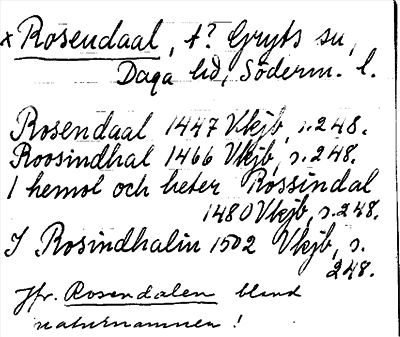 x Rosendaal, t? Gryts sn,
Daga hd, Söderm. l.
Rosendaal 1447 Vkjb, s. 248.
Roosindhal 1466 Vkjb, s. 248.
1 hemol och heter Rossindal
1480 Vkjb, s. 248.
J Rosindhalin 1502 Vkjb, s.
248.
Jfr. Rosendalen bland
naturnamnen!